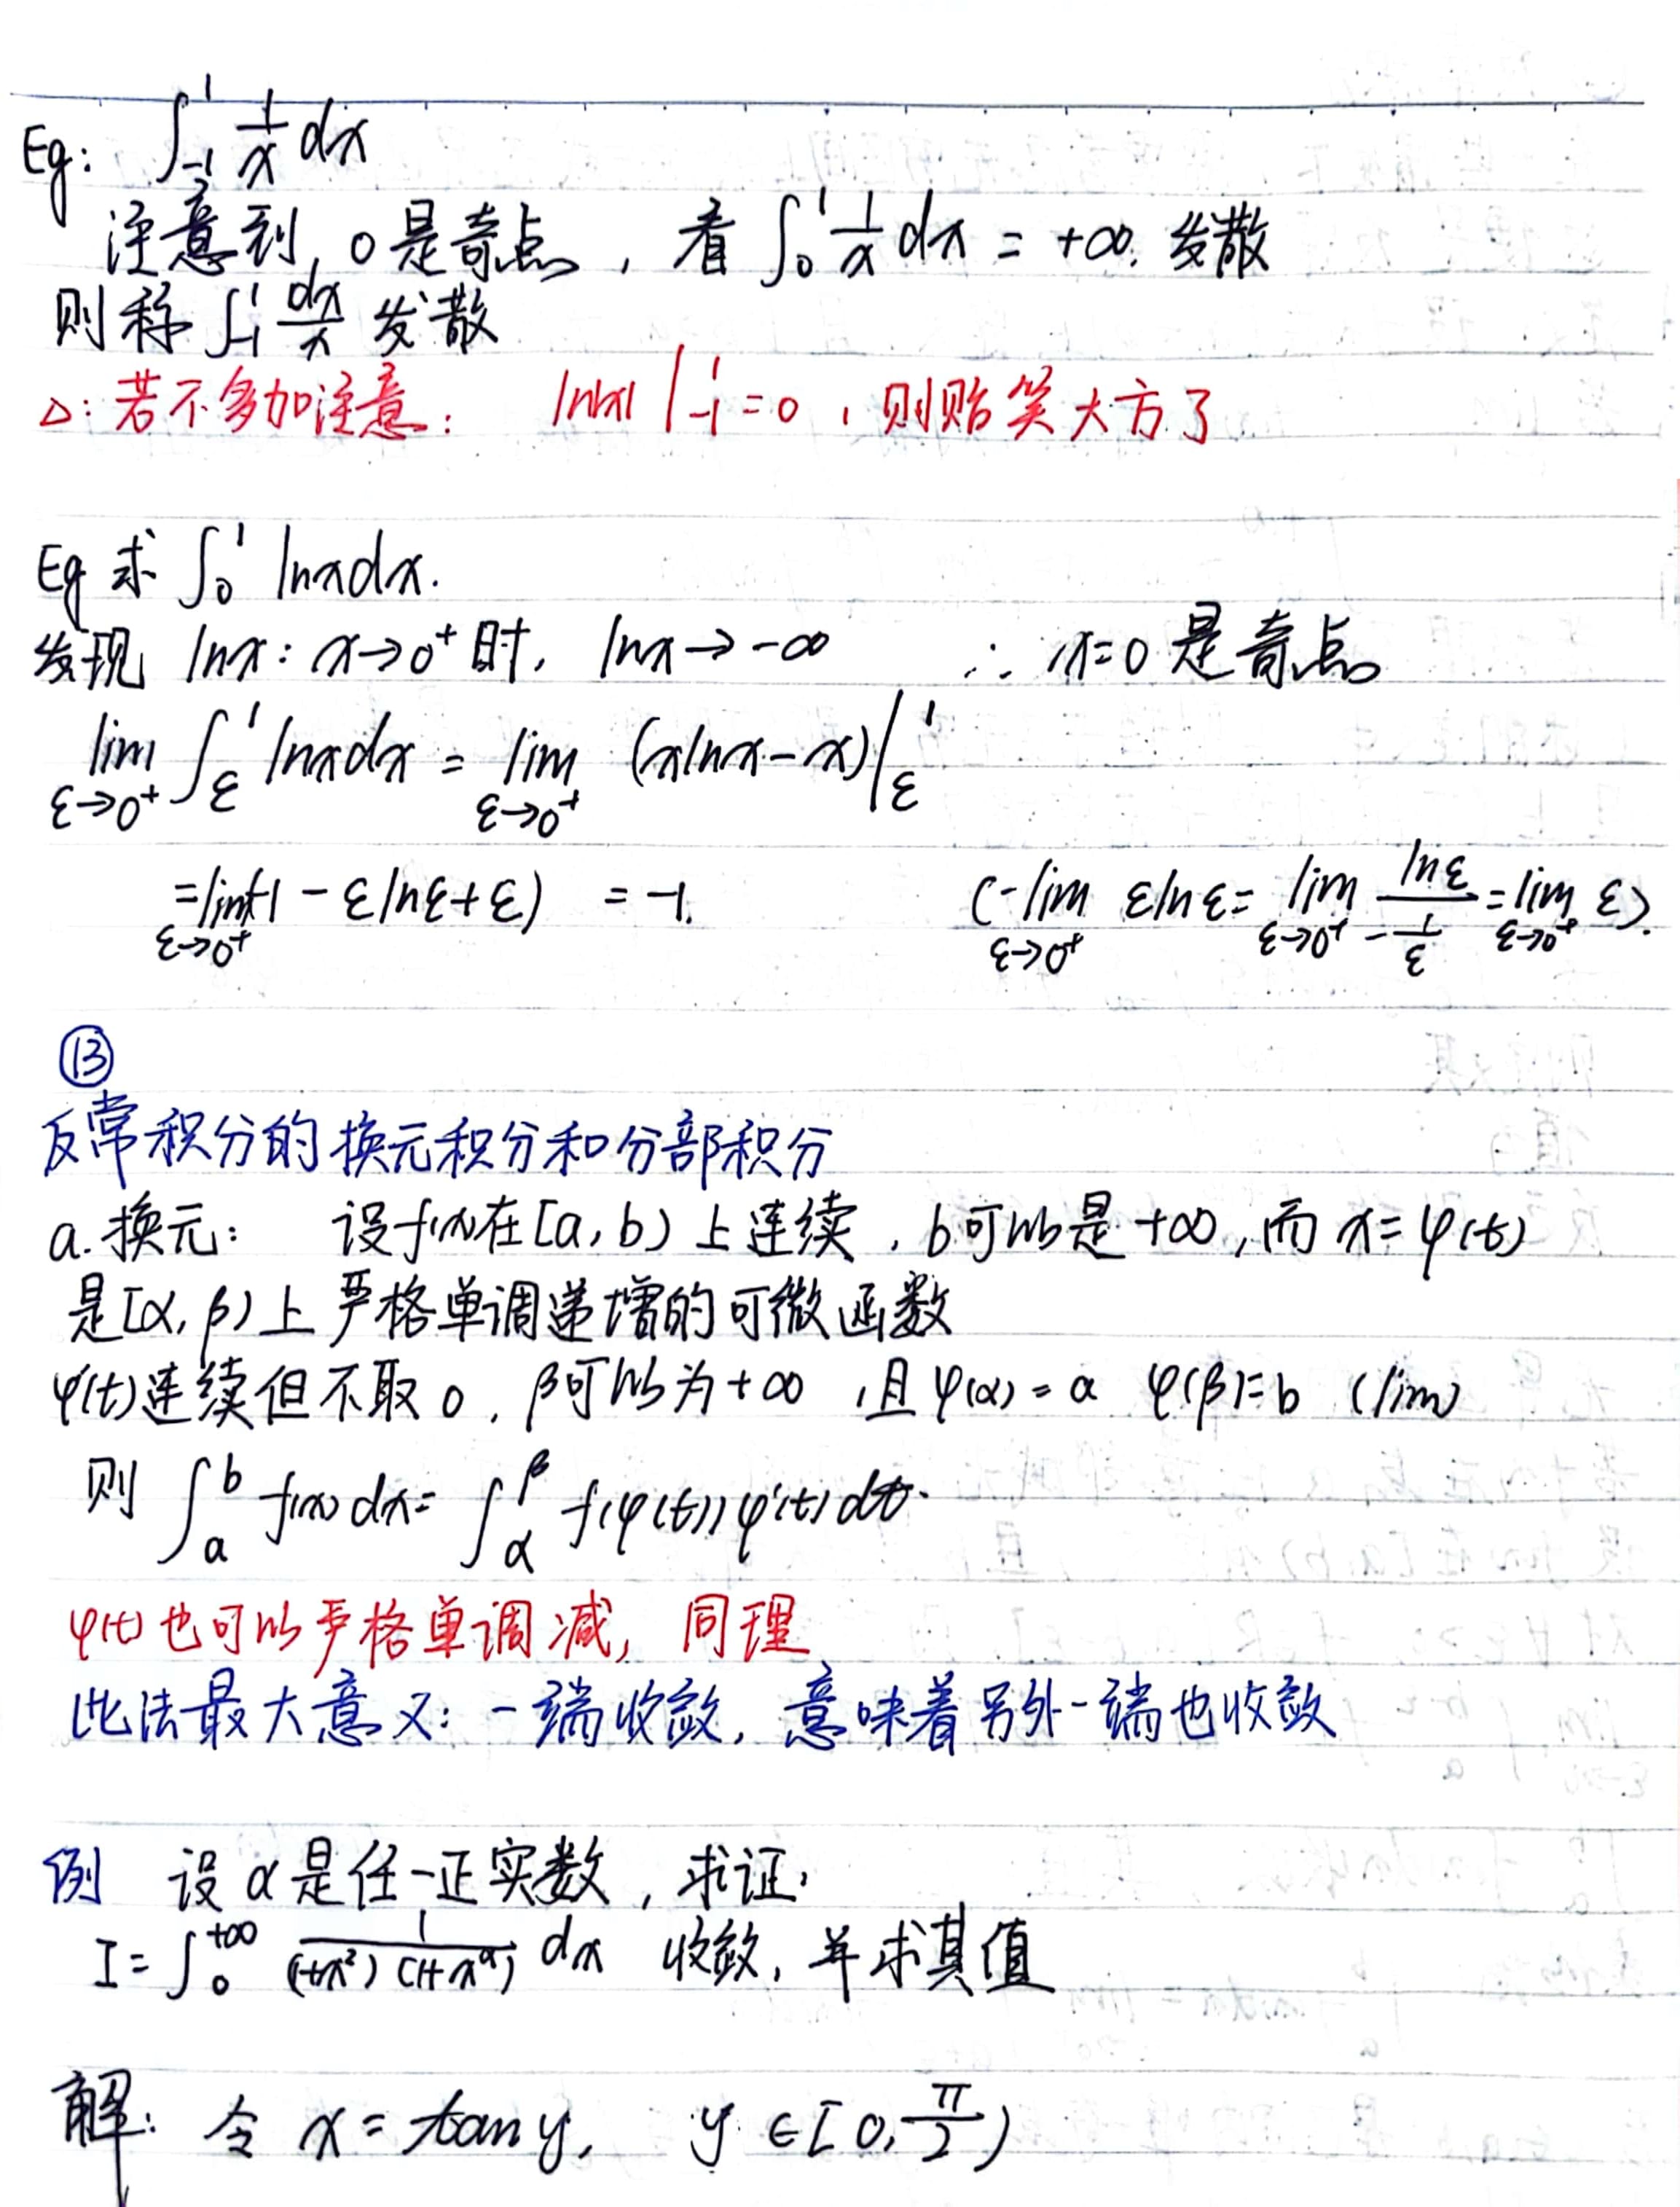 Eg: ∫₋₁¹ 1/x dx
注意到, 0是奇点, 看 ∫₀¹ 1/x dx = +∞. 发散
则称 ∫₋₁¹ dx/x 发散
△: 若不多加注意: ln|x| |₋₁¹ = 0, 则贻笑大方了
Eg 求 ∫₀¹ lnxdx.
发现 lnx: x→0⁺时, lnx→-∞ ∴ x=0 是奇点
lim_{ε→0⁺} ∫_ε^1 lnxdx = lim_{ε→0⁺} (xlnx-x)|_ε^1
=lim_{ε→0⁺}(-1 - εlnε+ε) = -1. (-lim_{ε→0⁺} εlnε= lim_{ε→0⁺} lnε/(-1/ε) =lim_{ε→0⁺} ε).
⑬
反常积分的换元积分和分部积分
a.换元: 设f(x)在[a,b)上连续, b可以是+∞, 而 x=φ(t)
是[α,β)上严格单调递增的可微函数
φ'(t)连续但不取0, β可以为+∞, 且φ(α)=a φ(β)=b (lim)
则 ∫_a^b f(x)dx= ∫_α^β f(φ(t))φ'(t)dt.
φ(t)也可以严格单调减, 同理
此法最大意义: 一端收敛, 意味着另外一端也收敛
例 设α是任一正实数, 求证:
I=∫₀^{+∞} 1/((1+x²)(1+x^α)) dx 收敛, 并求其值
解: 令 x=tany, y∈[0,π/2)